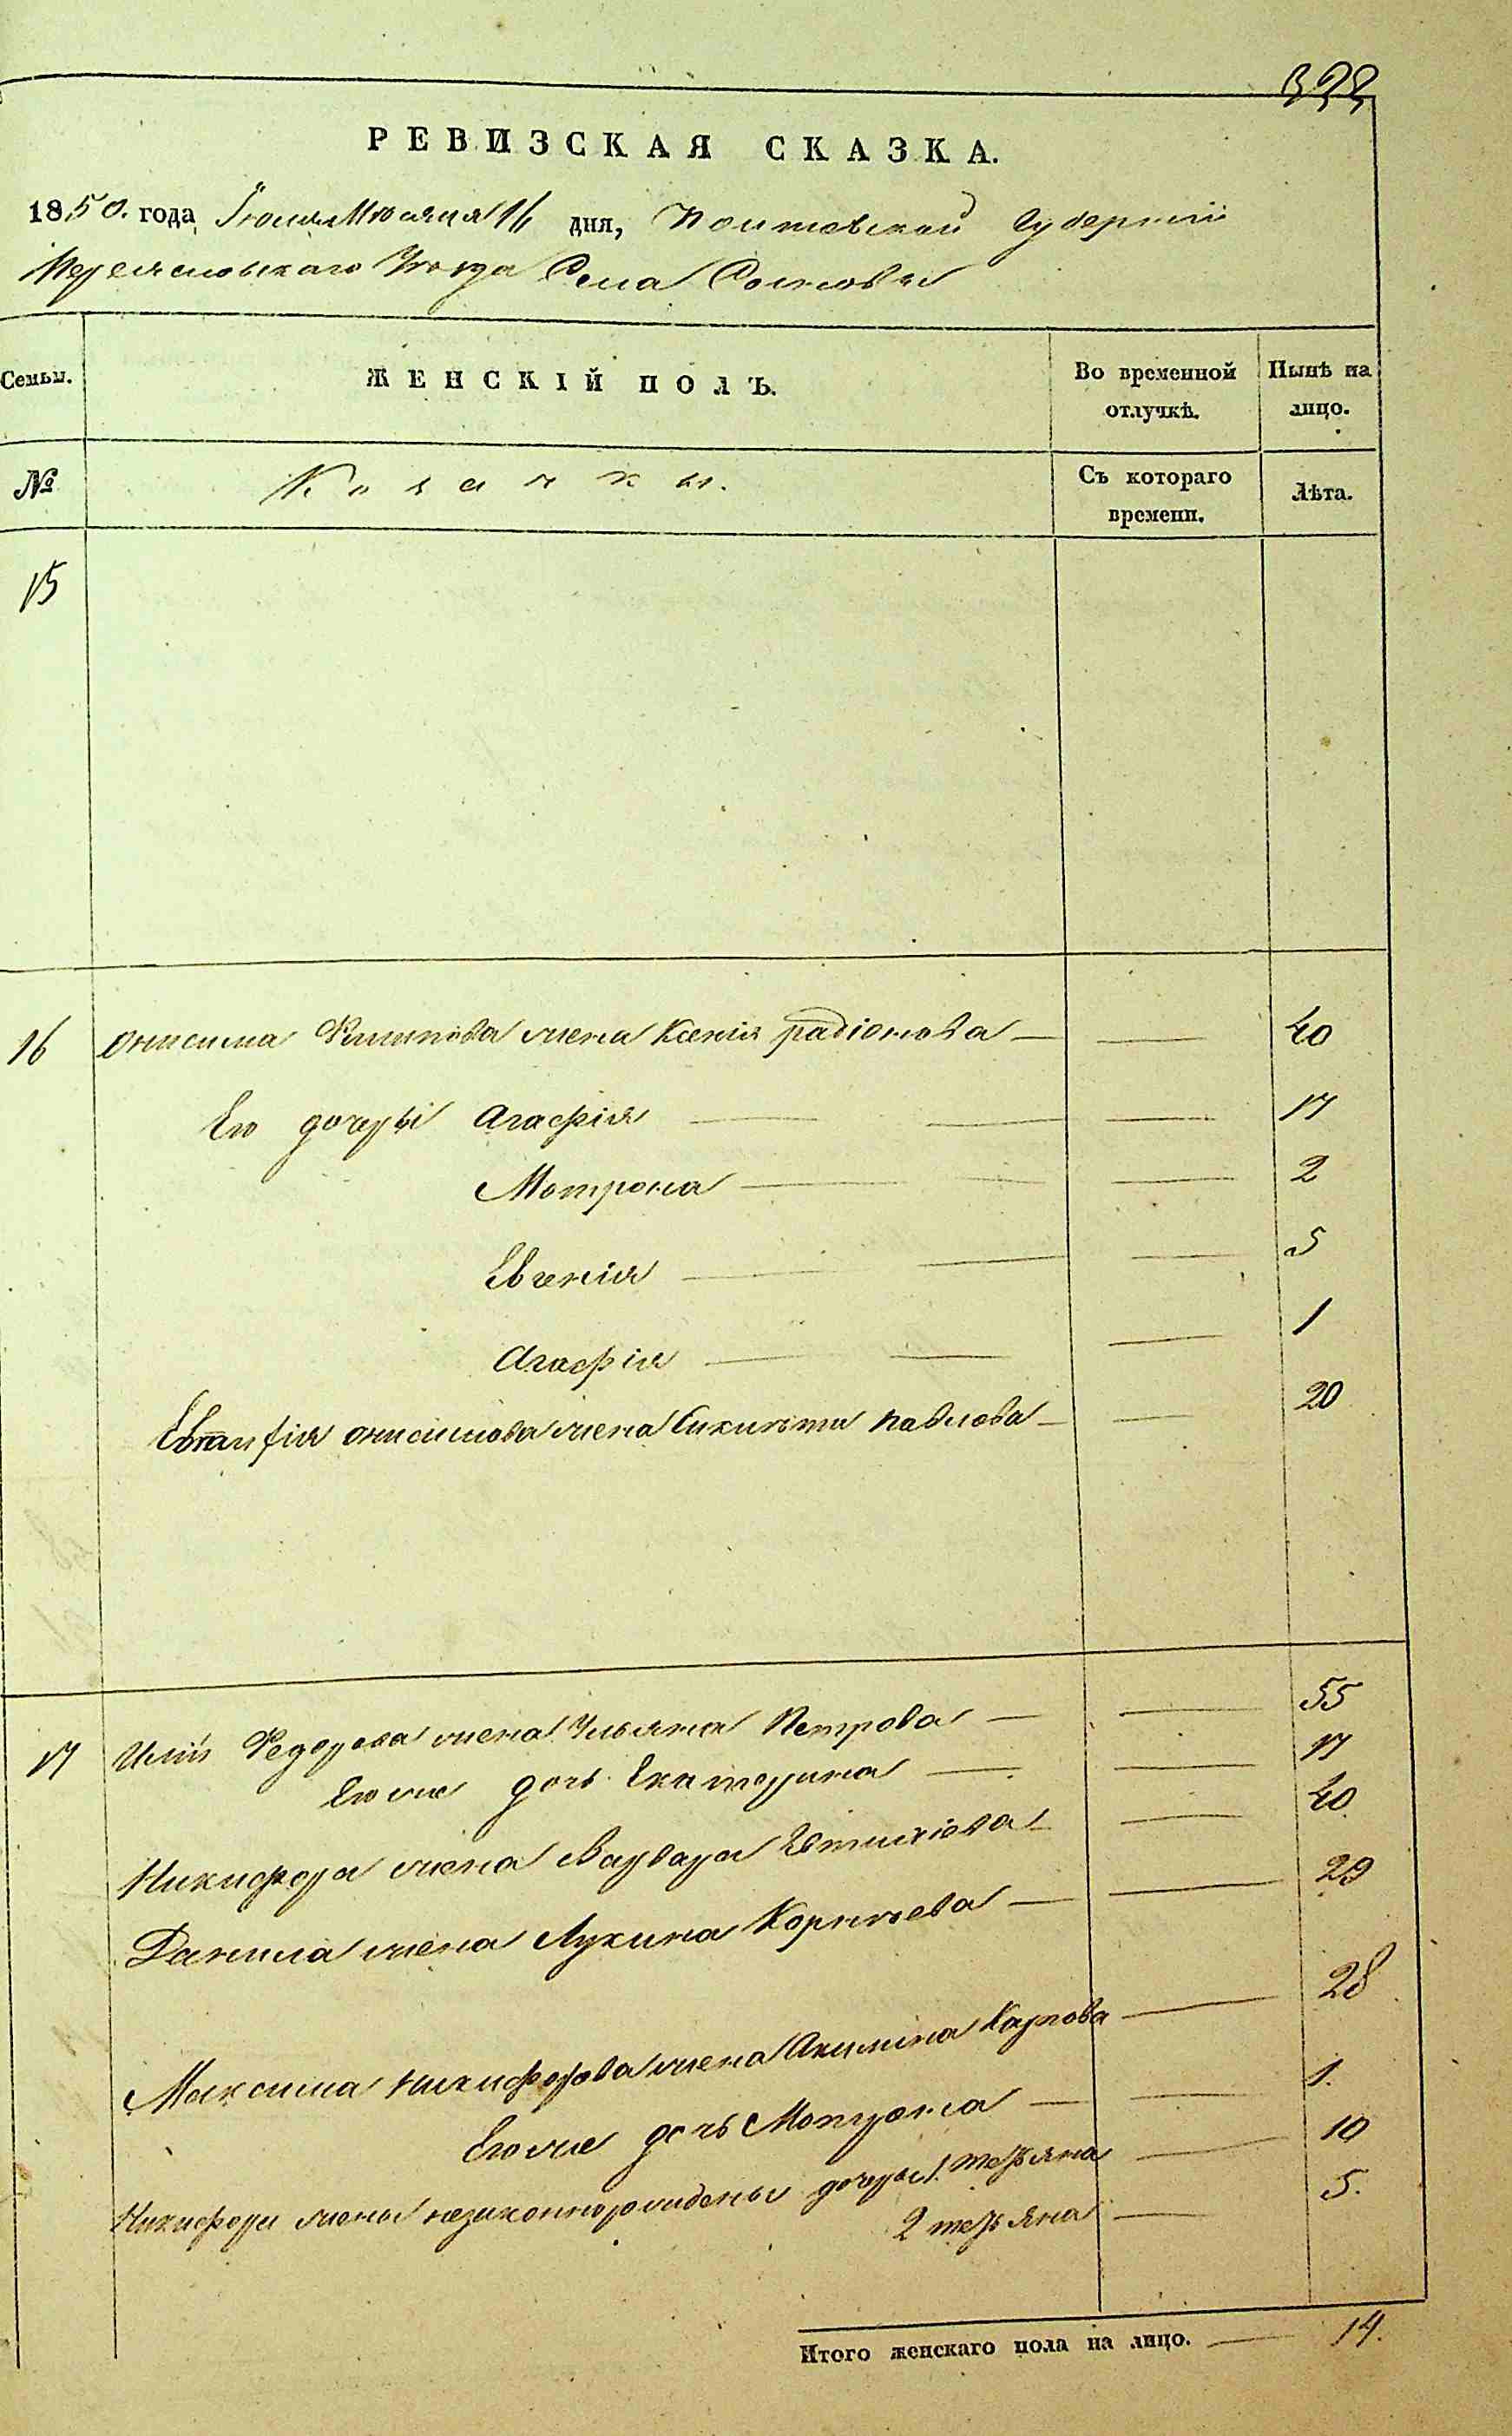 322
РЕВИЗСКАЯ СКАЗКА.
1850. года Іюля Мѣсяца 16 дня, Полтавской Губерніи
Переяславскаго Уѣзда Села Сошкова
Семьи. ЖЕНСКІЙ ПОЛЪ. Во временной отлучкѣ. Нынѣ на лицо.
№ Козачки. Съ котораго времени. Лѣта.
15
16 Онисима Филипова жена Ксенія радіонова — — 40
Его дочери Агафія — — 17
Мотрона — — 2
Евгенія — — 5
Агафія — — 1
онисимова жена павлова — — 20
17 Иліи Федорова жена Ульяна Петрова — — 55
Его же дочь Екатерина — — 17
Никифора жена Варвара — 40
Данила жена Лукина Корнѣева — — 29
Максима никифорова жена Акилина Карпова — 28
Его же дочь Мотрона — — 1.
Никифора жены незаконнорожденые дочери 1. терьяна — 10
2 терьяна — 5.
Итого женскаго пола на лицо. — 14.